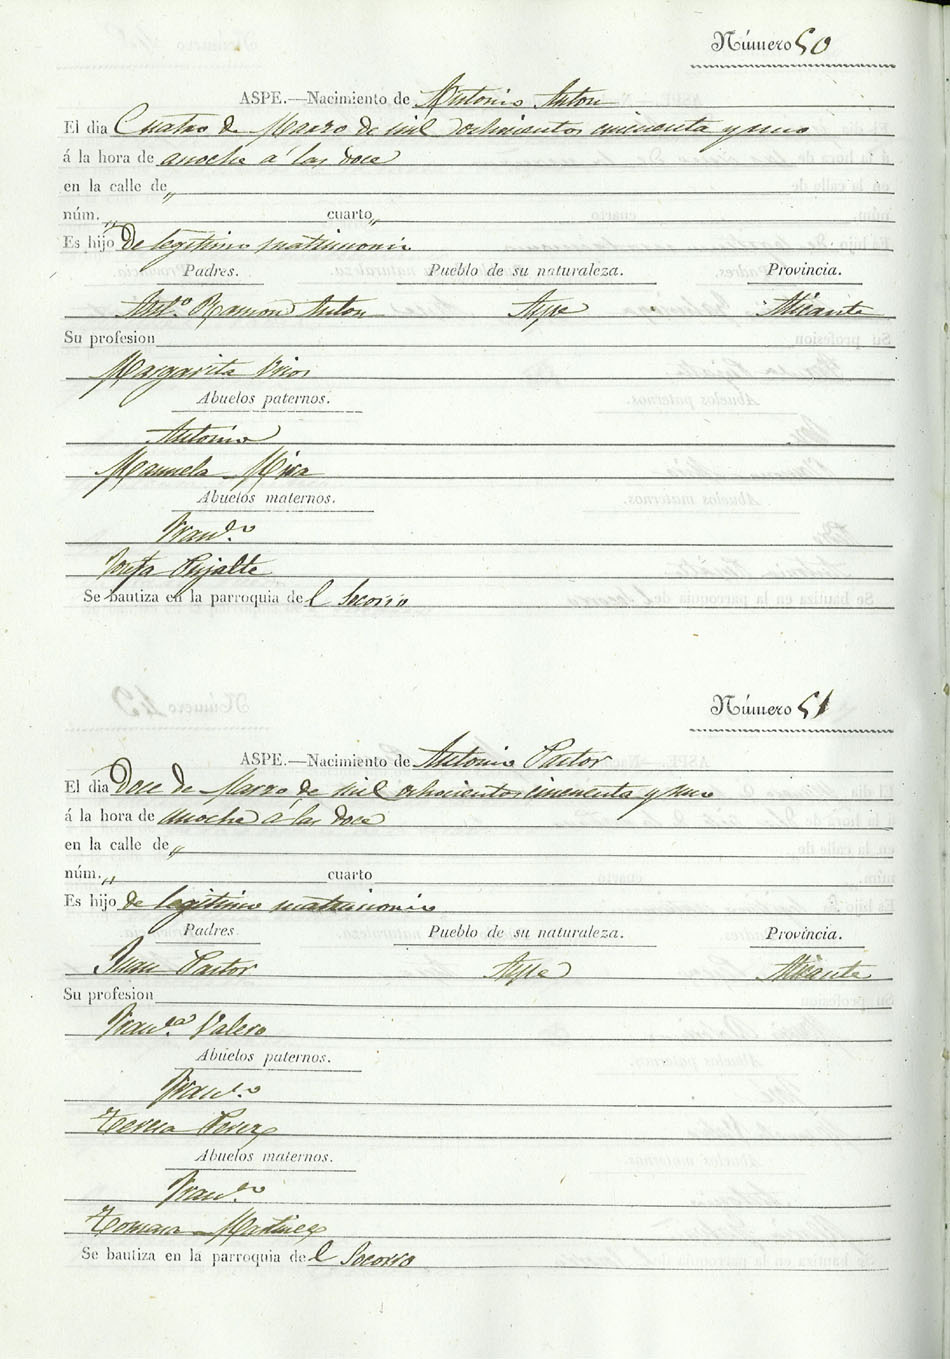 Número 50
ASPE.—Nacimiento de Antonio Anton
El dia Cuatro de Marzo de mil ochocientos cincuenta y uno
á la hora de anoche a las doce
en la calle de „
núm. „ cuarto „
Es hijo de legitimo matrimonio
Padres. Pueblo de su naturaleza. Provincia.
Ramon Anton Aspe Alicante
Su profesion
Margarita
Abuelos paternos.
Antonio
Manuela Mira
Abuelos maternos.
Fran.co
Josefa Pujalte
Se bautiza en la parroquia del Socorro
Número 51
ASPE.—Nacimiento de Antonio Pastor
El dia Doce de Marzo de mil ochocientos cincuenta y uno
á la hora de anoche a las doce
en la calle de „
núm. „ cuarto
Es hijo de legitimo matrimonio
Padres. Pueblo de su naturaleza. Provincia.
Juan Pastor Aspe Alicante
Su profesion
Fran.ca Valero
Abuelos paternos.
Fran.co
Teresa Perez
Abuelos maternos.
Fran.co
Tomasa Martinez
Se bautiza en la parroquia del Socorro